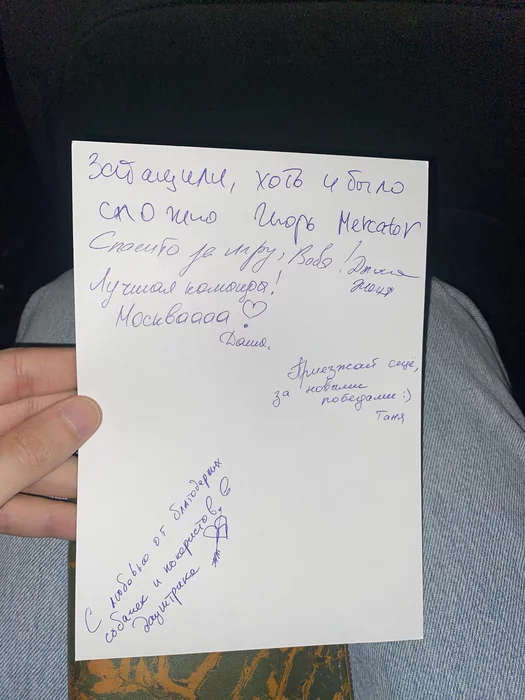 Затащили, хоть и было
сложно Игорь Mercator
Спасибо за игру, Вова!
Женя
Лучшая команда!
Москваааа! ♡
Даша.
Приезжай ещё,
за новыми
победами :)
Таня
С любовью от благодарных
собачек и покеристов